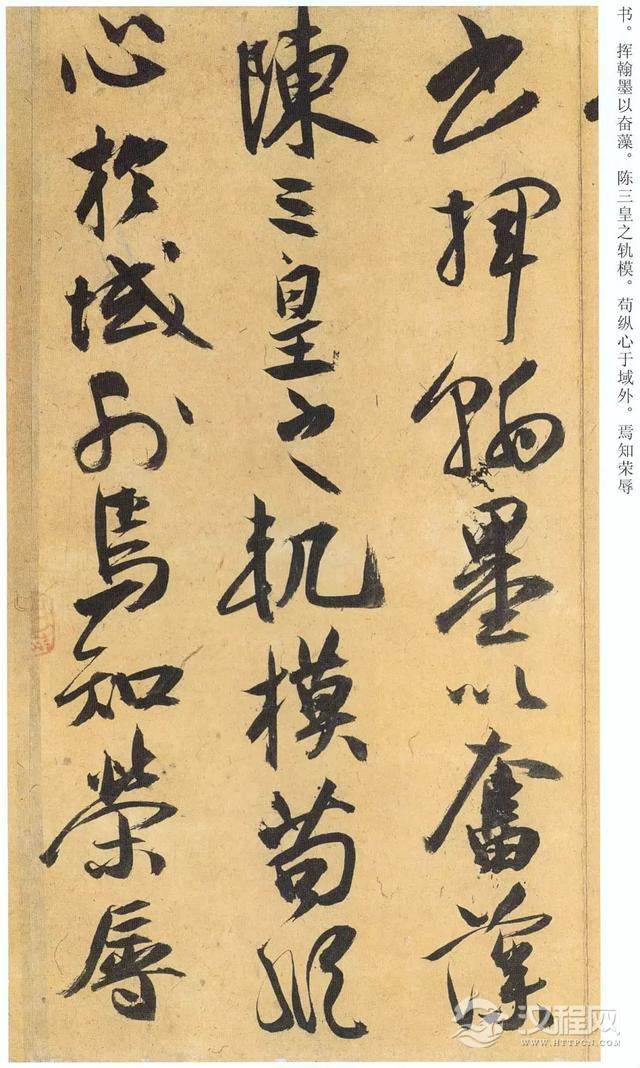 书。挥翰墨以奋藻。陈三皇之轨模。苟纵心于域外。焉知荣辱
书挥翰墨以奮藻
陳三皇之軌模苟縱
心於域外焉知榮辱
汉程网
WWW.HTTPCN.COM